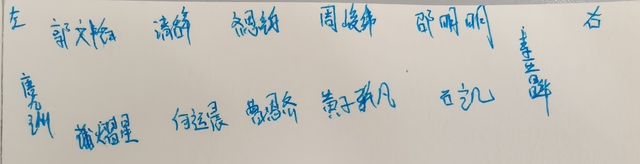 左 郭文韬 齐思钧 周峻纬 邵明明 李晋晔 右
唐九洲 蒲熠星 何运晨 曹恩齐 黄子弘凡 石凯